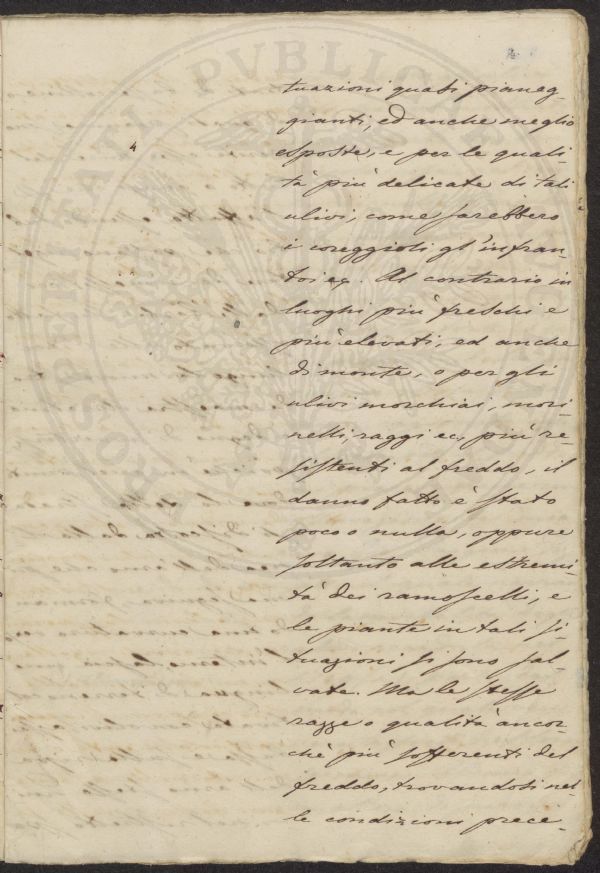 tuazioni quasi pianeg-
gianti, ed anche meglio
esposte, e per le quali-
tà più delicate di tali
ulivi, come sarebbero
i coreggioli gl'infran-
toi ec. Al contrario in
luoghi più freschi e
più elevati, ed anche
di monte, o per gli
ulivi morchiai, mori-
nelli, raggi ec. più re-
sistenti al freddo, il
danno fatto è stato
poco o nulla, oppure
soltanto alle estremi-
tà dei ramoscelli, e
le piante in tali si-
tuazioni si sono sal-
vate. Ma le stesse
razze o qualità ancor-
chè più sofferenti del
freddo, trovandosi nel-
le condizioni prece-
PROSPERITATI PVBLICAE